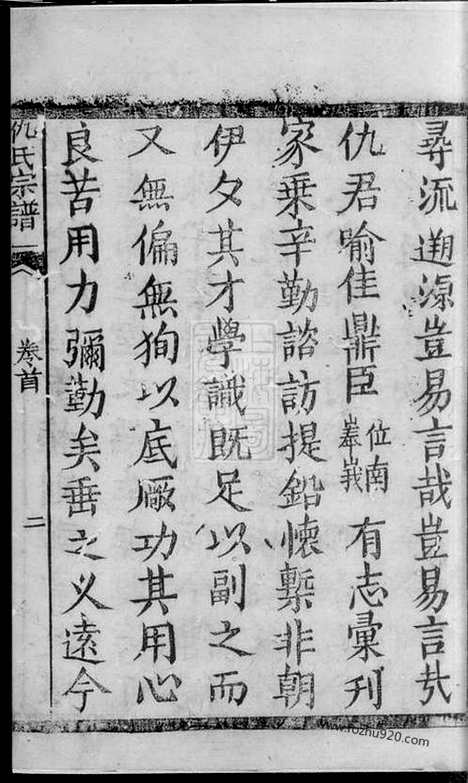 尋流遡源豈易言哉豈易言哉
仇君喻佳鼎臣位南峯峩有志彙刊
家乗辛勤諮訪提鉛懐槧非朝
伊夕其才學識既足以副之而
又無偏無狥以底厥功其用心
良苦用力彌勤矣垂之乂遠今
仇氏宗譜 卷首 二
www.fozhu920.com